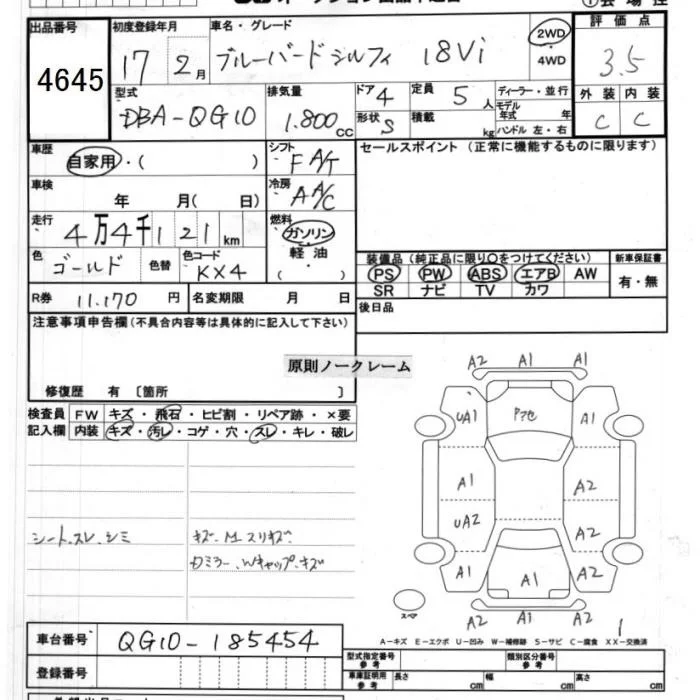 出品番号 初度登録年月 車名・グレード 評価点
4645 17年 2月 ブルーバードシルフィ 18Vi 2WD・4WD 3.5
型式 排気量 ドア 4 定員 5人 ディーラー・並行 外装 内装
DBA-QG10 1.800cc 形状 S 積載 kg モデル年式 年 C C
ハンドル 左・右
車歴 自家用・( ) シフト FA/T セールスポイント (正常に機能するものに限ります)
車検 年 月( 日) 冷房 AA/C
走行 4万4千121km 燃料 ガソリン・軽油・( )
色 ゴールド 色替 色コード KX4
装備品(純正品に限り○をつけてください) 新車保証書
PS PW ABS エアB AW 有・無
SR ナビ TV カワ
R券 11.170円 名変期限 月 日 後日品
注意事項申告欄(不具合内容等は具体的に記入して下さい)
原則ノークレーム
修復歴 有 〔箇所 〕
検査員記入欄 FW キズ・飛石・ヒビ割・リペア跡・×要
内装 キズ・汚レ・コゲ・穴・スレ・キレ・破レ
シート.スレ.シミ キズ.M.スリキズ.
Dミラー.Wキャップ.キズ
A2 A1 A1
UA1 A1
A1 A2
UA2 A2
A1 A1 A2
A2 A1 A2
スペア 1
A-キズ E-エクボ U-凹み W-補修跡 S-サビ C-腐食 XX-交換済
車台番号 QG10-185454
型式指定番号 参考 類別区分番号 参考
登録番号 車庫証明用 参考 長さ cm 幅 cm 高さ cm